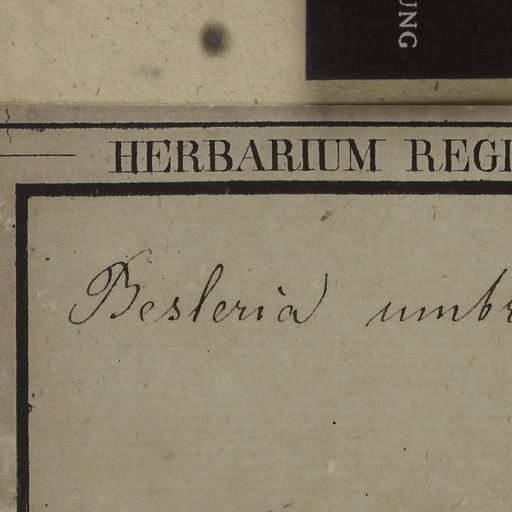 UNG
HERBARIUM REGI
Besleria umbr